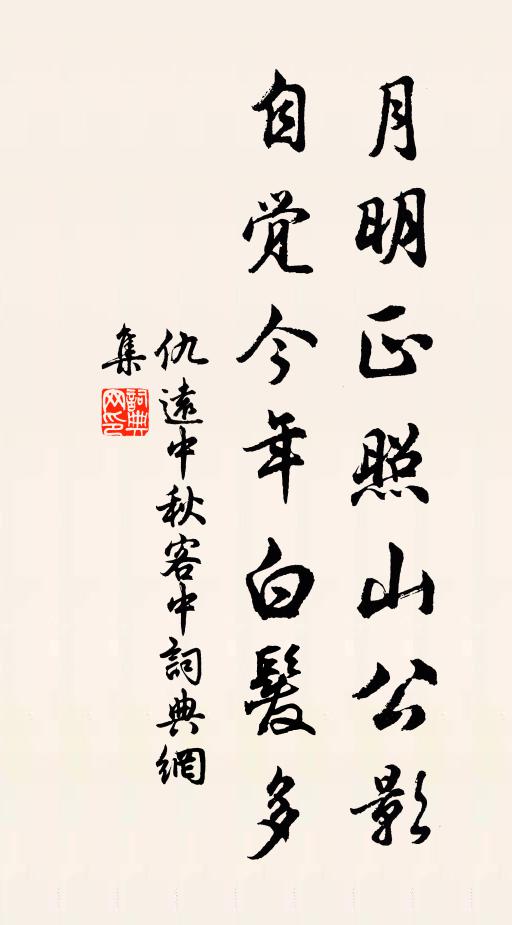 月明正照山公影
自觉今年白髮多
仇遠中秋客中詞典網
集
詞典網印